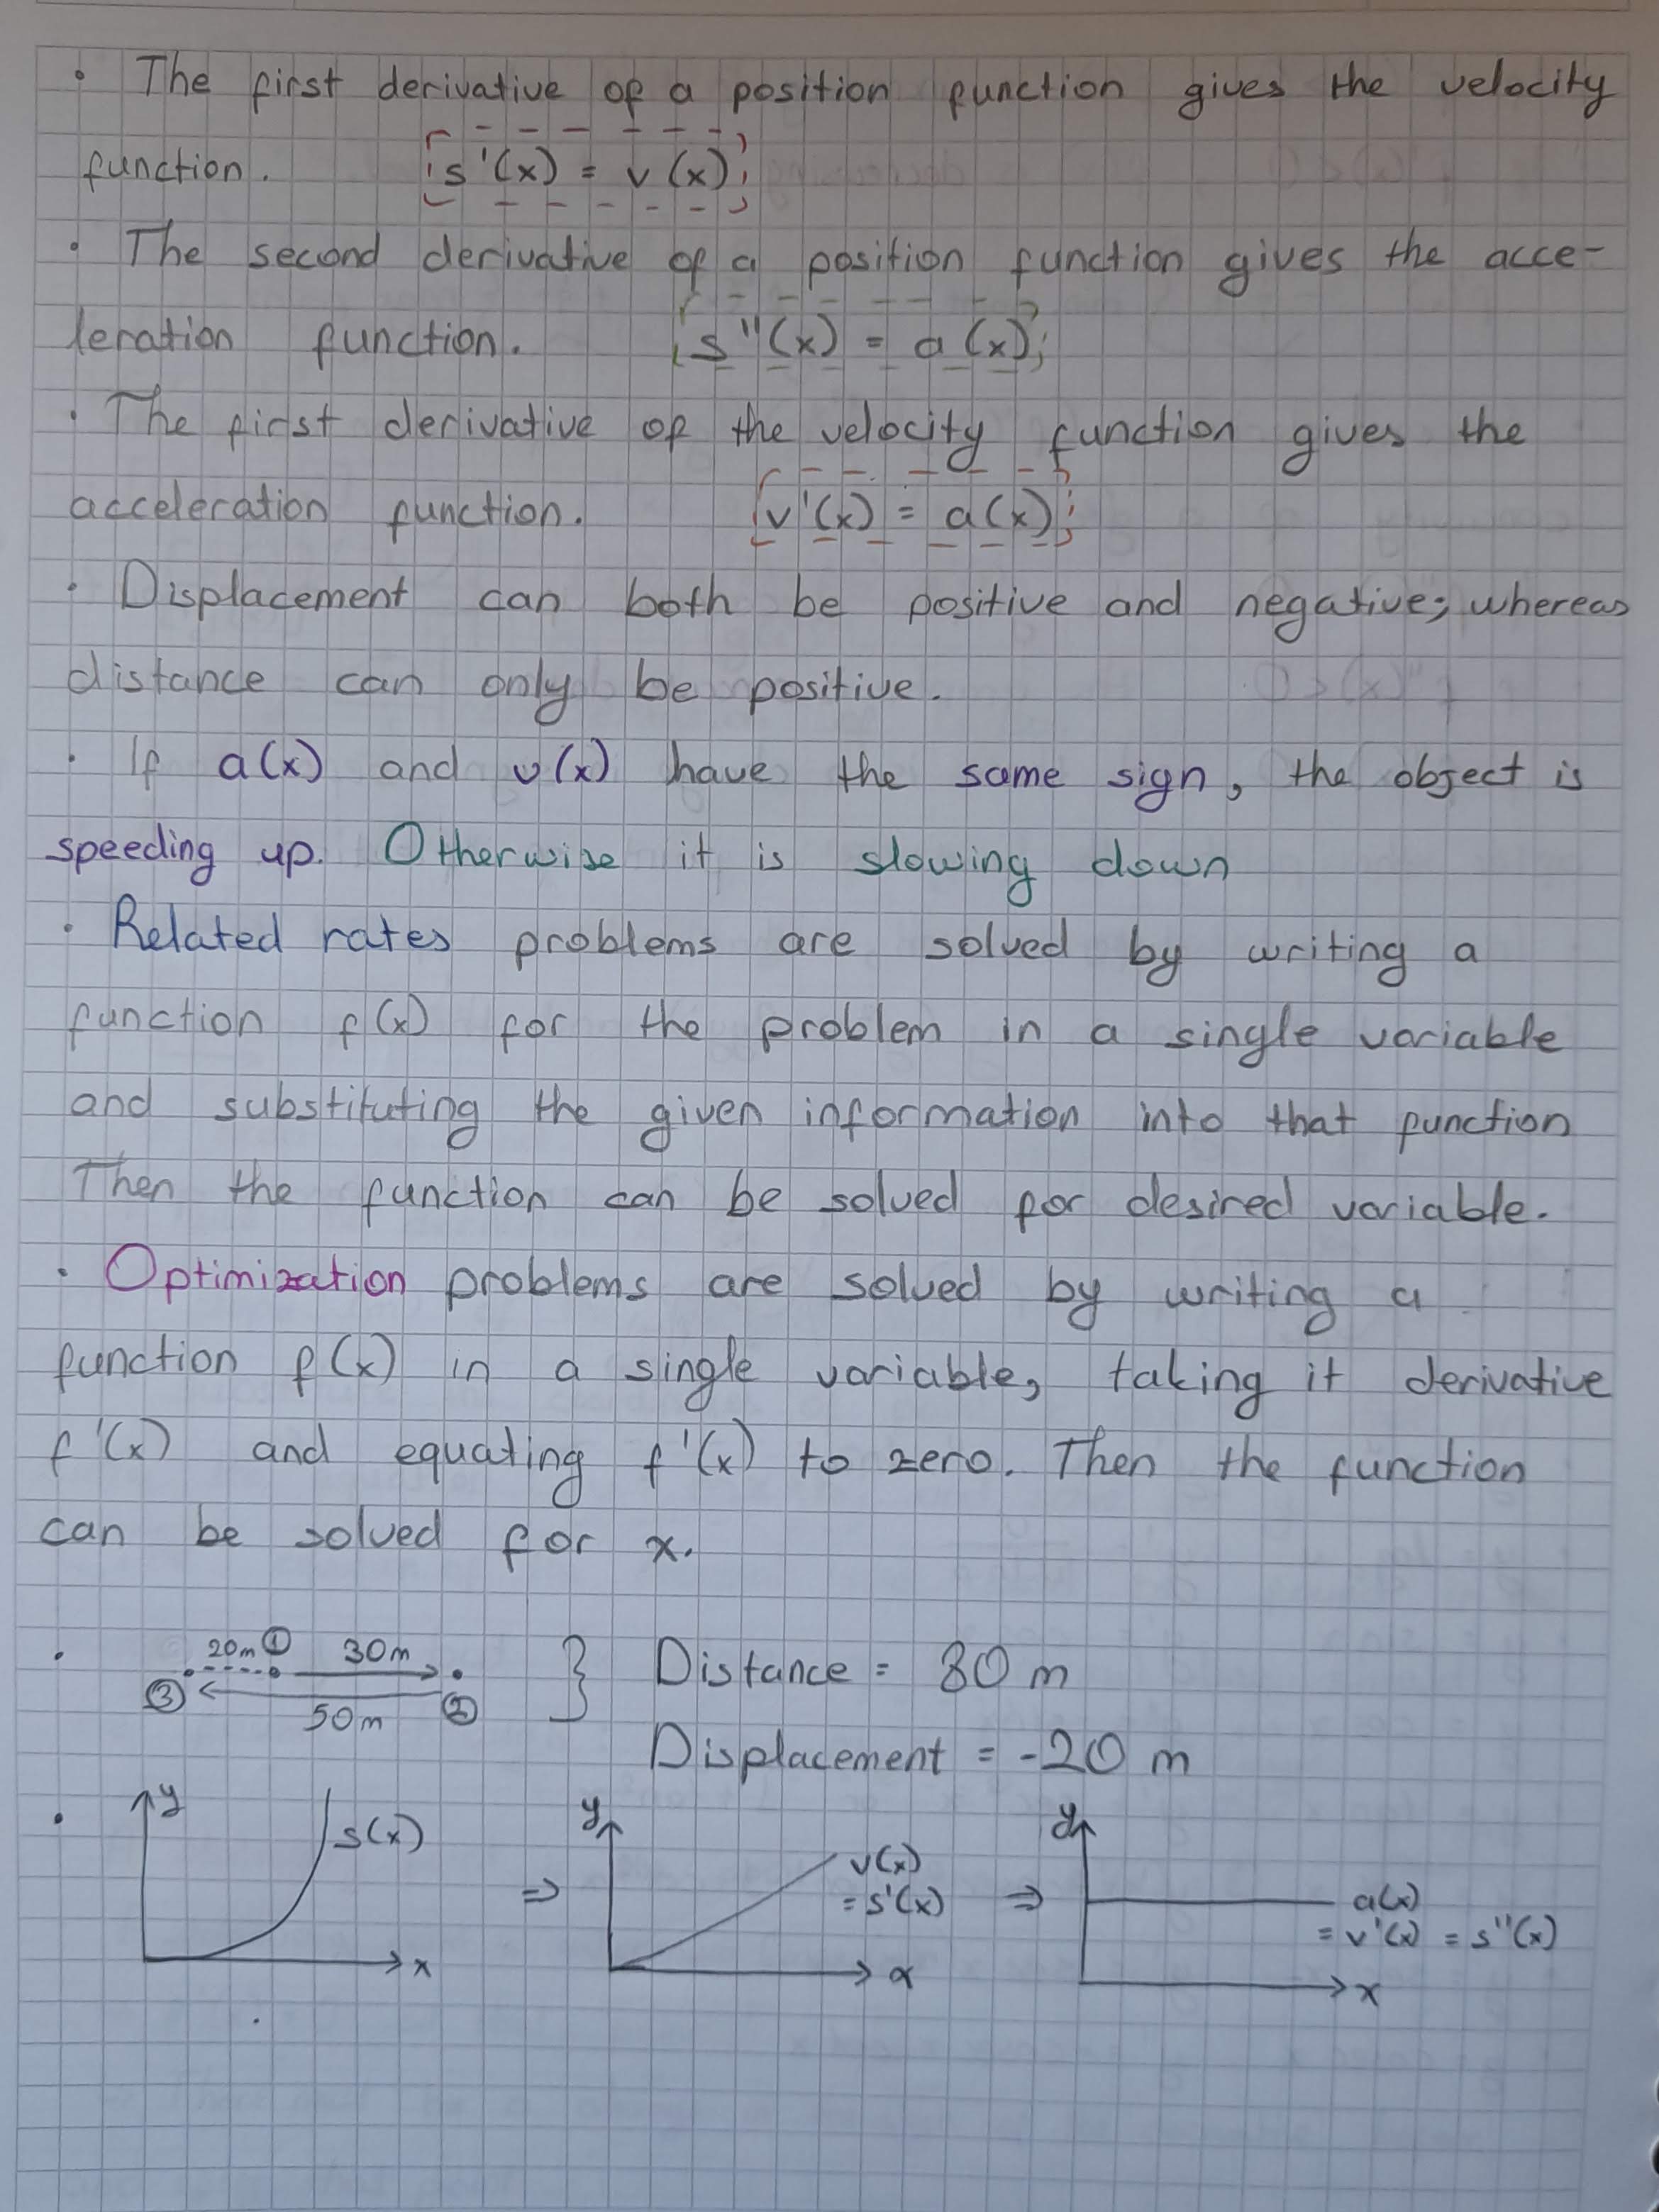 • The first derivative of a position function gives the velocity
function. s'(x) = v(x)
• The second derivative of a position function gives the acce-
leration function. s''(x) = a(x)
• The first derivative of the velocity function gives the
acceleration function. v'(x) = a(x)
• Displacement can both be positive and negative; whereas
distance can only be positive.
• If a(x) and v(x) have the same sign, the object is
speeding up. Otherwise it is slowing down
• Related rates problems are solved by writing a
function f(x) for the problem in a single variable
and substituting the given information into that function
Then the function can be solved for desired variable.
• Optimization problems are solved by writing a
function f(x) in a single variable, taking it derivative
f'(x) and equating f'(x) to zero. Then the function
can be solved for x.
• 20m ① 30m } Distance = 80 m
③ 50m ②
Displacement = -20 m
• y s(x) x
⇒ y v(x) = s'(x) x
⇒ y a(x) = v'(x) = s''(x) x